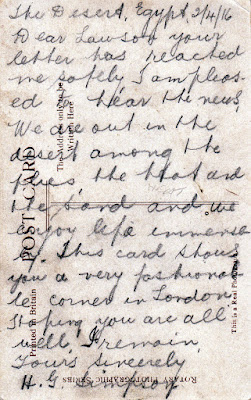 The Desert, Egypt 2/4/16
Dear Lawson your
letter has reached
me safely, I am pleas-
ed to hear the news
We are out in the
desert among the
flies, the heat and
the sand and we
enjoy life immense
ly. This card shows
you a very fashionab
le corner in London.
Hoping you are all
well, I remain,
Yours Sincerely
H. G. Simpson.
POST CARD
The Address only to be
Written Here
Printed in Britain
This is a Real Photograph
ROTARY PHOTOGRAPHIC SERIES